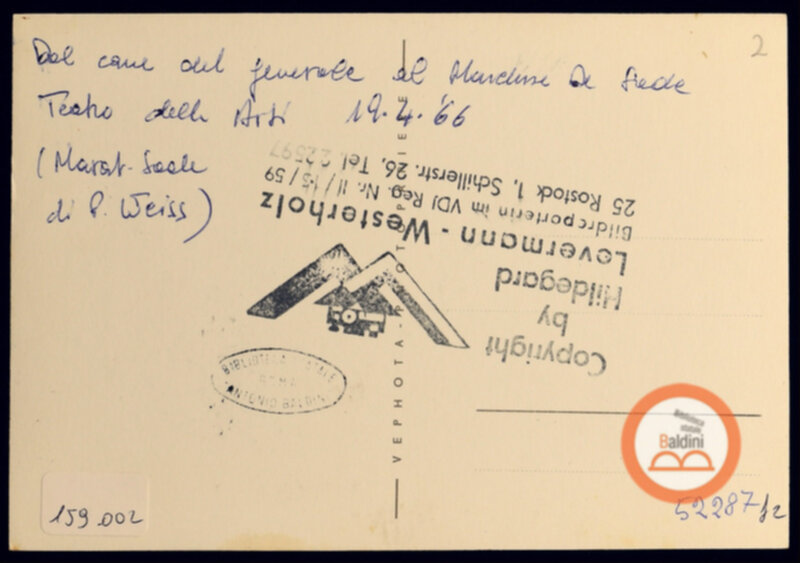 2
Dal cane del generale al Marchese De Sade
Teatro delle Arti 19.4.'66
(Marat-Sade
di P. Weiss)
Copyright
by
Hildegard
Levermann - Westerholz
Bildreporterin im VDJ Reg. Nr. II/15/59
25 Rostock 1, Schillerstr. 26, Tel. 22597
BIBLIOTECA STATALE
ROMA
ANTONIO BALDINI
VEPHOTA
Biblioteca
statale
Baldini
159.002
52287/2